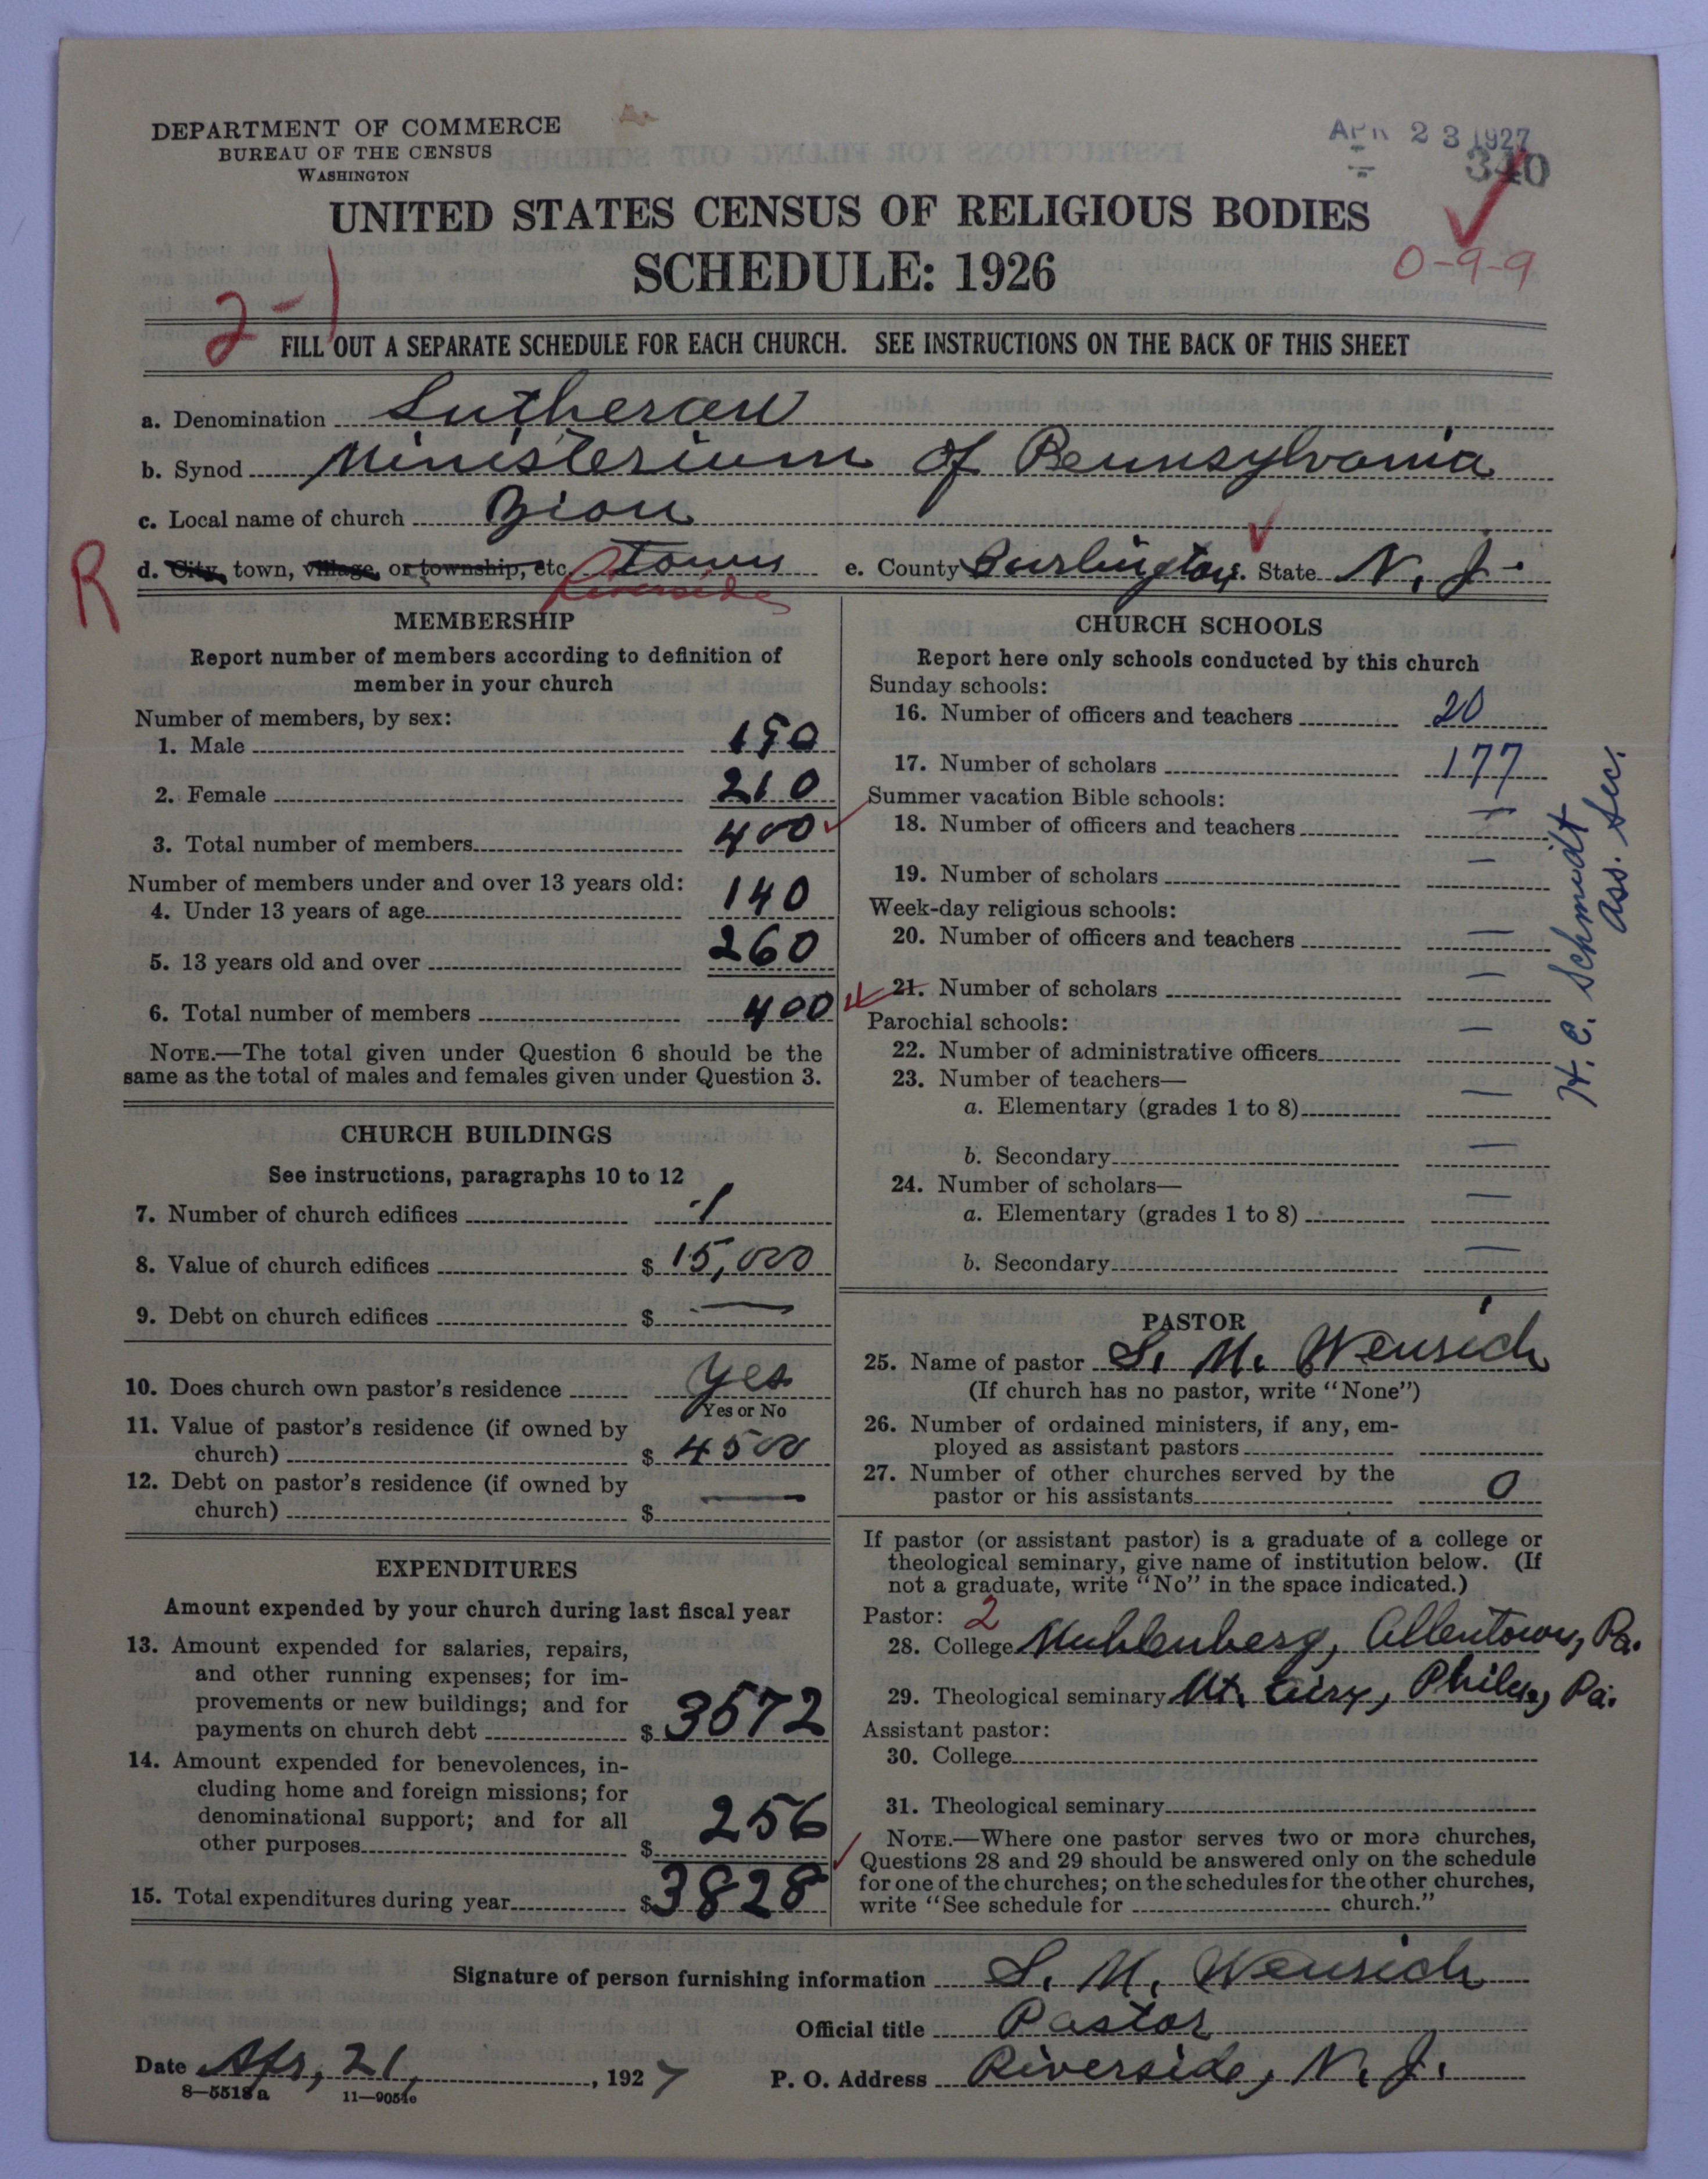 DEPARTMENT OF COMMERCE
BUREAU OF THE CENSUS
WASHINGTON
APR 23 1927
340
UNITED STATES CENSUS OF RELIGIOUS BODIES
SCHEDULE: 1926
0-9-9
2-1
FILL OUT A SEPARATE SCHEDULE FOR EACH CHURCH. SEE INSTRUCTIONS ON THE BACK OF THIS SHEET
a. Denomination Lutheran
b. Synod Ministerium of Pennsylvania
c. Local name of church Zion
d. City, town, village, or township, etc. town e. County Burlington. State N. J.
Riverside
R
MEMBERSHIP
Report number of members according to definition of
member in your church
Number of members, by sex:
1. Male 190
2. Female 210
3. Total number of members 400
Number of members under and over 13 years old:
4. Under 13 years of age 140
5. 13 years old and over 260
6. Total number of members 400
NOTE.—The total given under Question 6 should be the
same as the total of males and females given under Question 3.
CHURCH BUILDINGS
See instructions, paragraphs 10 to 12
7. Number of church edifices 1
8. Value of church edifices $ 15,000
9. Debt on church edifices $ —
10. Does church own pastor's residence yes
Yes or No
11. Value of pastor's residence (if owned by
church) $ 4500
12. Debt on pastor's residence (if owned by
church) $ —
EXPENDITURES
Amount expended by your church during last fiscal year
13. Amount expended for salaries, repairs,
and other running expenses; for im-
provements or new buildings; and for
payments on church debt $ 3572
14. Amount expended for benevolences, in-
cluding home and foreign missions; for
denominational support; and for all
other purposes $ 256
15. Total expenditures during year $ 3828
CHURCH SCHOOLS
Report here only schools conducted by this church
Sunday schools:
16. Number of officers and teachers 20
17. Number of scholars 177
Summer vacation Bible schools:
18. Number of officers and teachers —
19. Number of scholars —
Week-day religious schools:
20. Number of officers and teachers —
21. Number of scholars —
Parochial schools:
22. Number of administrative officers —
23. Number of teachers—
a. Elementary (grades 1 to 8) —
b. Secondary —
24. Number of scholars—
a. Elementary (grades 1 to 8) —
b. Secondary —
H. C. Schmidt
Ass. Sec.
PASTOR
25. Name of pastor S. M. Wenrich
(If church has no pastor, write "None")
26. Number of ordained ministers, if any, em-
ployed as assistant pastors
27. Number of other churches served by the
pastor or his assistants 0
If pastor (or assistant pastor) is a graduate of a college or
theological seminary, give name of institution below. (If
not a graduate, write "No" in the space indicated.)
Pastor: 2
28. College Muhlenberg, Allentown, Pa.
29. Theological seminary Mt. Airy, Phila, Pa.
Assistant pastor:
30. College
31. Theological seminary
NOTE.—Where one pastor serves two or more churches,
Questions 28 and 29 should be answered only on the schedule
for one of the churches; on the schedules for the other churches,
write "See schedule for church."
Signature of person furnishing information S. M. Wenrich
Official title Pastor
Date Apr, 21, 1927 P. O. Address Riverside, N. J.
8—5518a 11—9051c